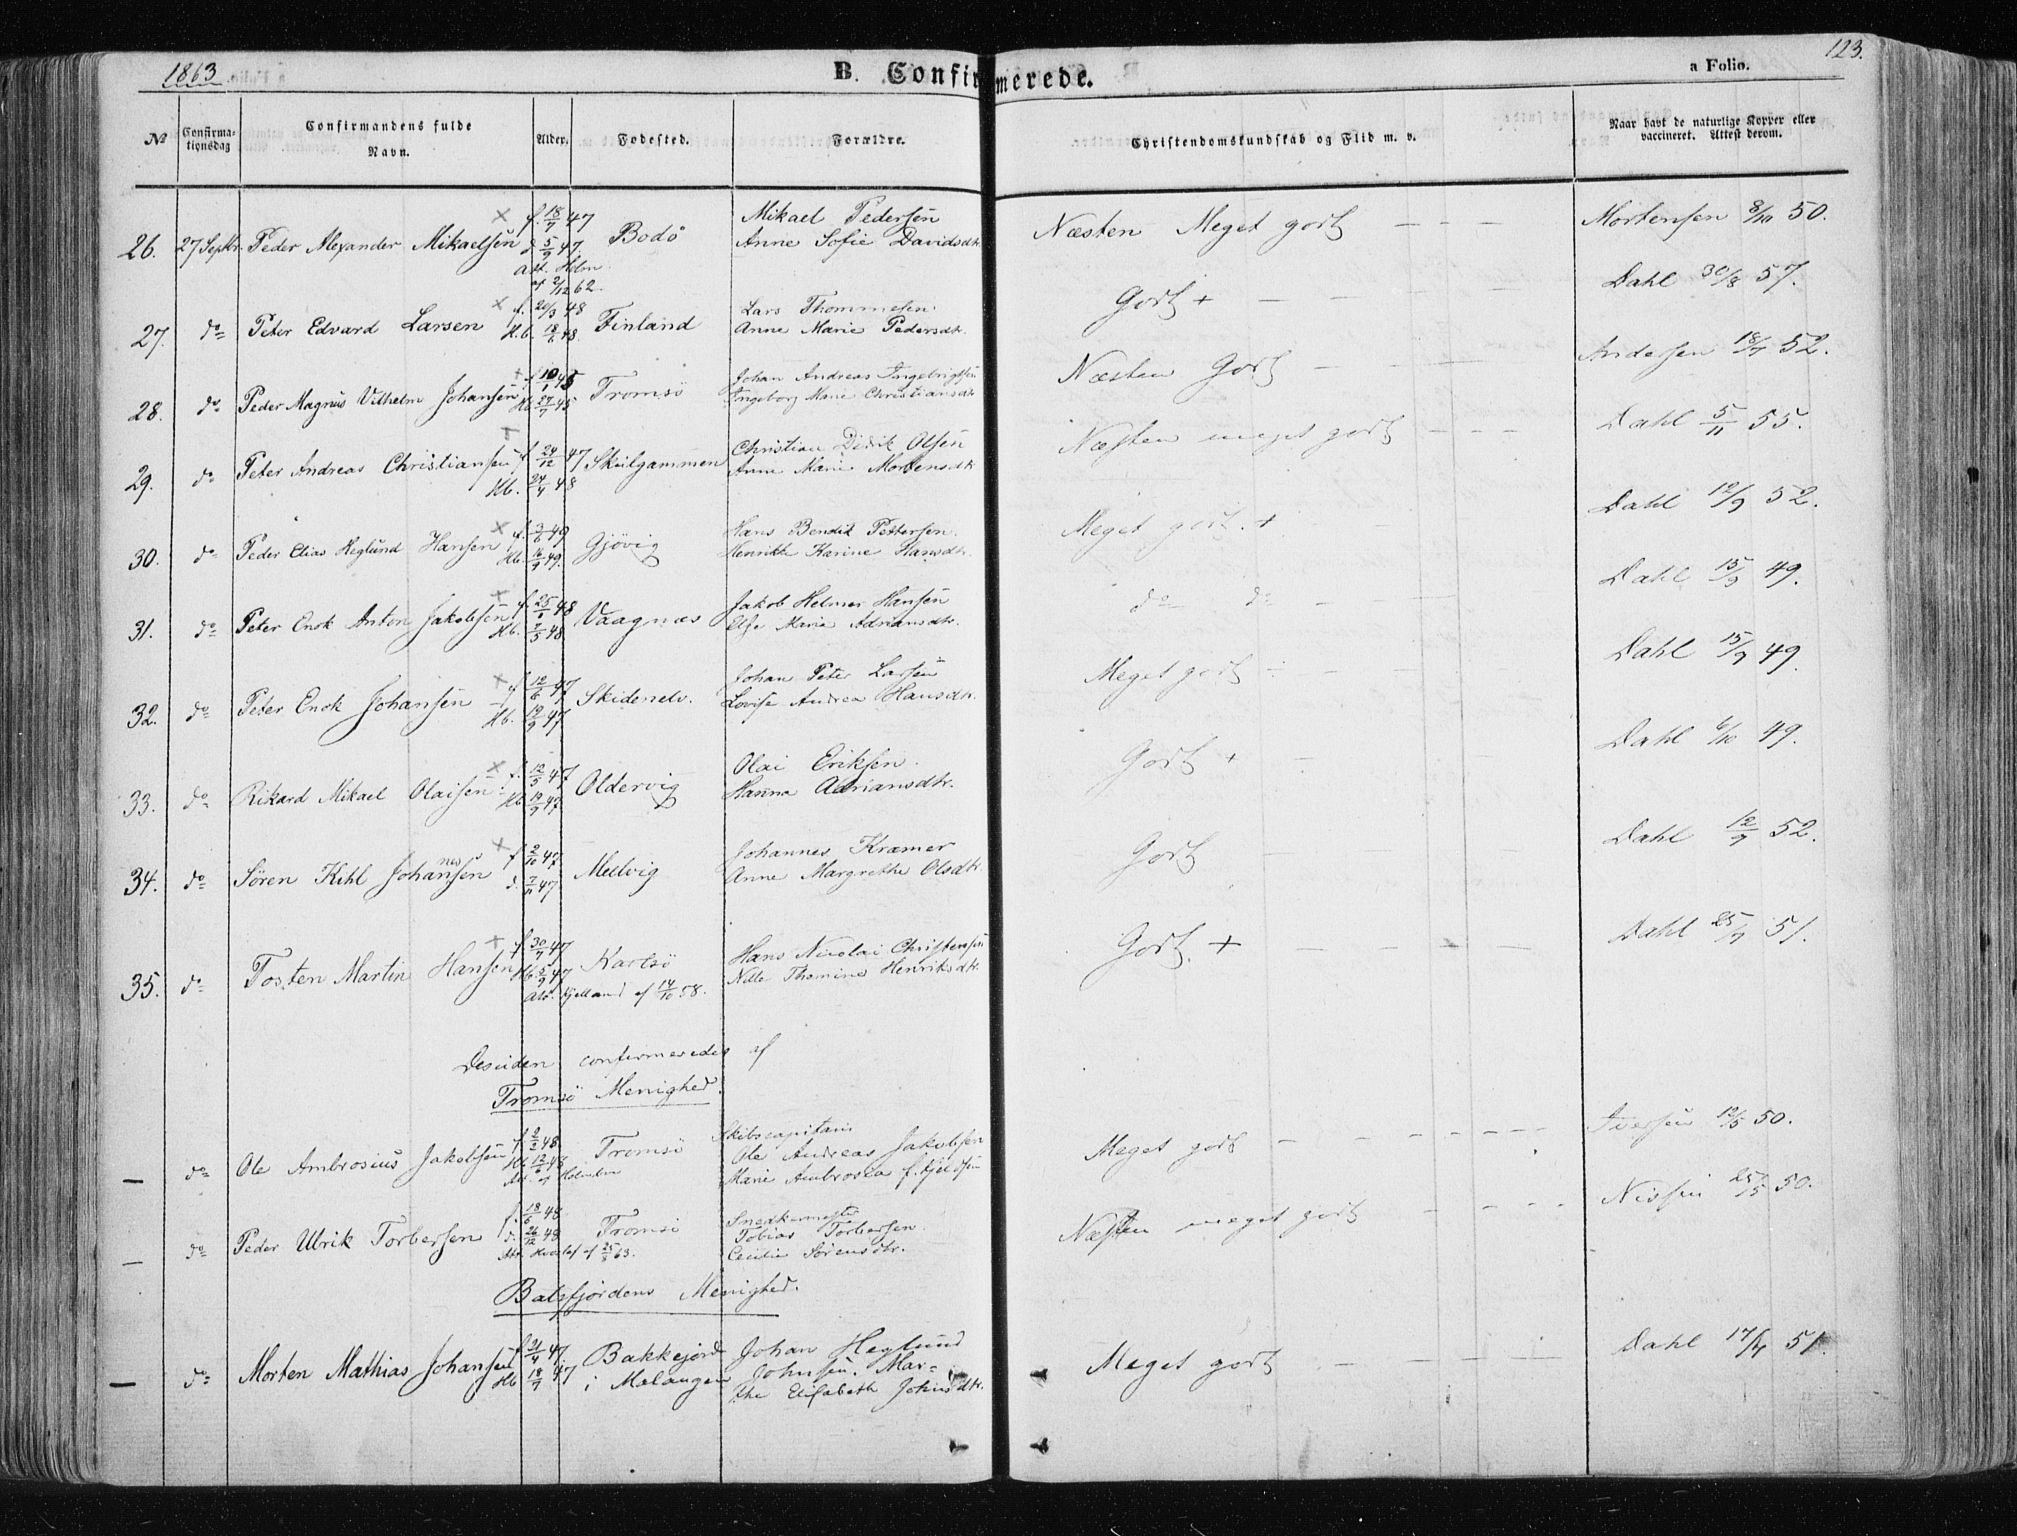 1863
B. Confirmerede.
a Folio.
123.
№
Confirma-
tionsdag
Confirmandens fulde
Navn.
Alder.
Fodested.
Forældre.
Christendomskundskab og Flid m. v.
Naar havt de naturlige Kopper eller
vaccineret. Attest derom.
26. 27 Septbr. Peder Alexander Mikaelsen × f. 18/7 47 d. 5/9 47. Bodö
att. Holm. af 2/12 62.
Mikael Pedersen
Anne Sofie Davidsdtr.
Næsten Meget godt — — —
Mortensen 8/10 50.
27. do Peter Edvard Larsen × f. 20/3 48 H.b. 18/6 48. Finland
Lars Thommesen
Anne Marie Pedersdtr.
Godt + — — — —
Dahl 30/8 57.
28. do Peder Magnus Vilhelm Johansen + f. 10/1 45 Hb. 27/7 45 Tromsö
Johan Andreas Ingebrigtsen
Ingeborg Marie Christiansdtr
Næsten Godt — — —
Andersen 18/7 52.
29. do Peter Andreas Christiansen f. 24/12 47 Hb. 24/4 48 Skulgammen
Christian Didik Olsen
Anne Marie Mortensdtr
Næsten meget godt — — —
Dahl 5/11 55.
30. do Peder Elias Heglund Hansen × f. 3/6 49 Hb. 16/9 49. Gjövig
Hans Bendik Pettersen.
Henrikke Karine Hansdtr.
Meget godt. +
Dahl 12/9 52.
31. do Peter Enok Anton Jakobsen × f. 25/1 48 Hb. 7/5 48. Vaagnæs
Jakob Helmer Hansen
Else Maria Adriansdtr.
do do — —
Dahl 15/9 49.
32. do Peter Enok Johansen × f. 12/6 47 Hb. 19/9 47 Skidenelv.
Johan Peter Larsen
Lovise Andrea Hansdtr.
Meget godt — — —
Dahl 15/9 49.
33. do Rikard Mikael Olaisen. × f. 12/5 47 Hb. 19/9 47. Oldervig
Olai Eriksen.
Hanna Adriansdtr.
Godt + —
Dahl 6/10 49.
34. do Sören Kihl Johannesen + f. 2/10 47. d. 7/11 47 Mellvig
Johannes Kræmer
Anne Margrethe Olsdtr.
Godt — — —
Dahl 12/9 52.
35. do Tosten Martin Hansen + f. 30/7 47 Hb. 5/9 47 Karlsö
Att. Kjelland af 14/10 58.
Hans Nicolai Christensen
Nille Thomine Henriksdtr.
Godt. + — — — —
Dahl 25/9 51.
Desuden confirmeredes af
Tromsö Menighed.
— do Ole Ambrosius Jakobsen f. 2/3 48. Hb. 12/6 48 Tromsö
Att. af Holmboe
Skibscapitain
Ole Andreas Jakobsen
Marie Ambrosea f. Kjeldsen
Meget godt — — — — — —
Iversen 12/5 50.
— do Peder Ulrik Torbersen f. 18/6 48 d. 26/12 48 Tromsö
Att. af 25/8 63.
Snedkermester
Tobias Torbersen.
Cecilie Sörensdtr.
Næsten meget godt — — — —
Nissen 25/5 50.
Balsfjordens Menighed.
— do Morten Mathias Johansen f. 21/4 47 Hb 18/7 47 Bakkejord
i Malangen
Johan Heglund
Johnsen. Mar-
the Elisabeth Johnsdtr.
Meget godt — — — —
Dahl 17/9 51.